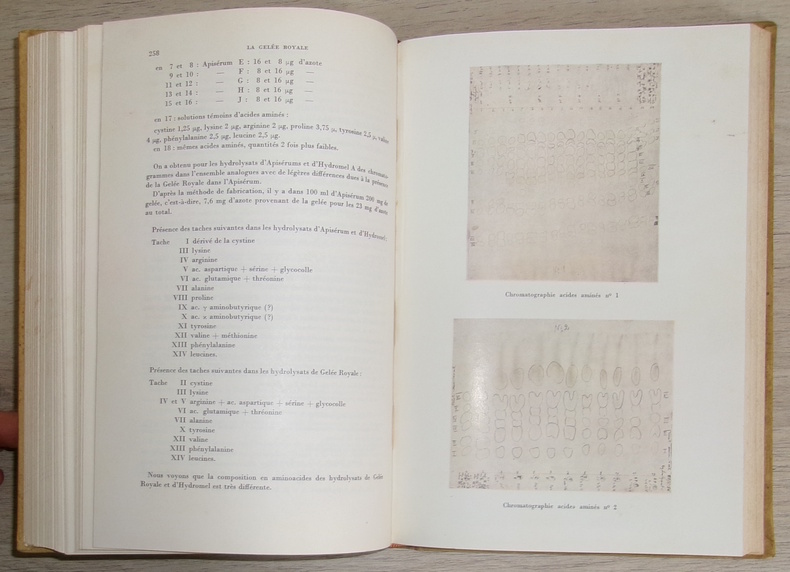 258
LA GELÉE ROYALE
en 7 et 8 : Apisérum E : 16 et 8 µg d'azote
9 et 10 : — F : 8 et 16 µg —
11 et 12 : — G : 8 et 16 µg —
13 et 14 : — H : 8 et 16 µg —
15 et 16 : — J : 8 et 16 µg —
en 17 : solutions témoins d'acides aminés :
cystine 1,25 µg, lysine 2 µg, arginine 2 µg, proline 3,75 µ, tyrosine 2,5 µ, valine
4 µg, phénylalanine 2,5 µg, leucine 2,5 µg.
en 18 : mêmes acides aminés, quantités 2 fois plus faibles.
On a obtenu pour les hydrolysats d'Apisérums et d'Hydromel A des chromato-
grammes dans l'ensemble analogues avec de légères différences dues à la présence
de la Gelée Royale dans l'Apisérum.
D'après la méthode de fabrication, il y a dans 100 ml d'Apisérum 200 mg de
gelée, c'est-à-dire, 7,6 mg d'azote provenant de la gelée pour les 23 mg d'azote
au total.
Présence des taches suivantes dans les hydrolysats d'Apisérum et d'Hydromel.
Tache I dérivé de la cystine
III lysine
IV arginine
V ac. aspartique + sérine + glycocolle
VI ac. glutamique + thréonine
VII alanine
VIII proline
IX ac. γ aminobutyrique (?)
X ac. α aminobutyrique (?)
XI tyrosine
XII valine + méthionine
XIII phénylalanine
XIV leucines.
Présence des taches suivantes dans les hydrolysats de Gelée Royale :
Tache II cystine
III lysine
IV et V arginine + ac. aspartique + sérine + glycocolle
VI ac. glutamique + thréonine
VII alanine
X tyrosine
XII valine
XIII phénylalanine
XIV leucines.
Nous voyons que la composition en aminoacides des hydrolysats de Gelée
Royale et d'Hydromel est très différente.
Chromatographie acides aminés nº 1
Chromatographie acides aminés nº 2